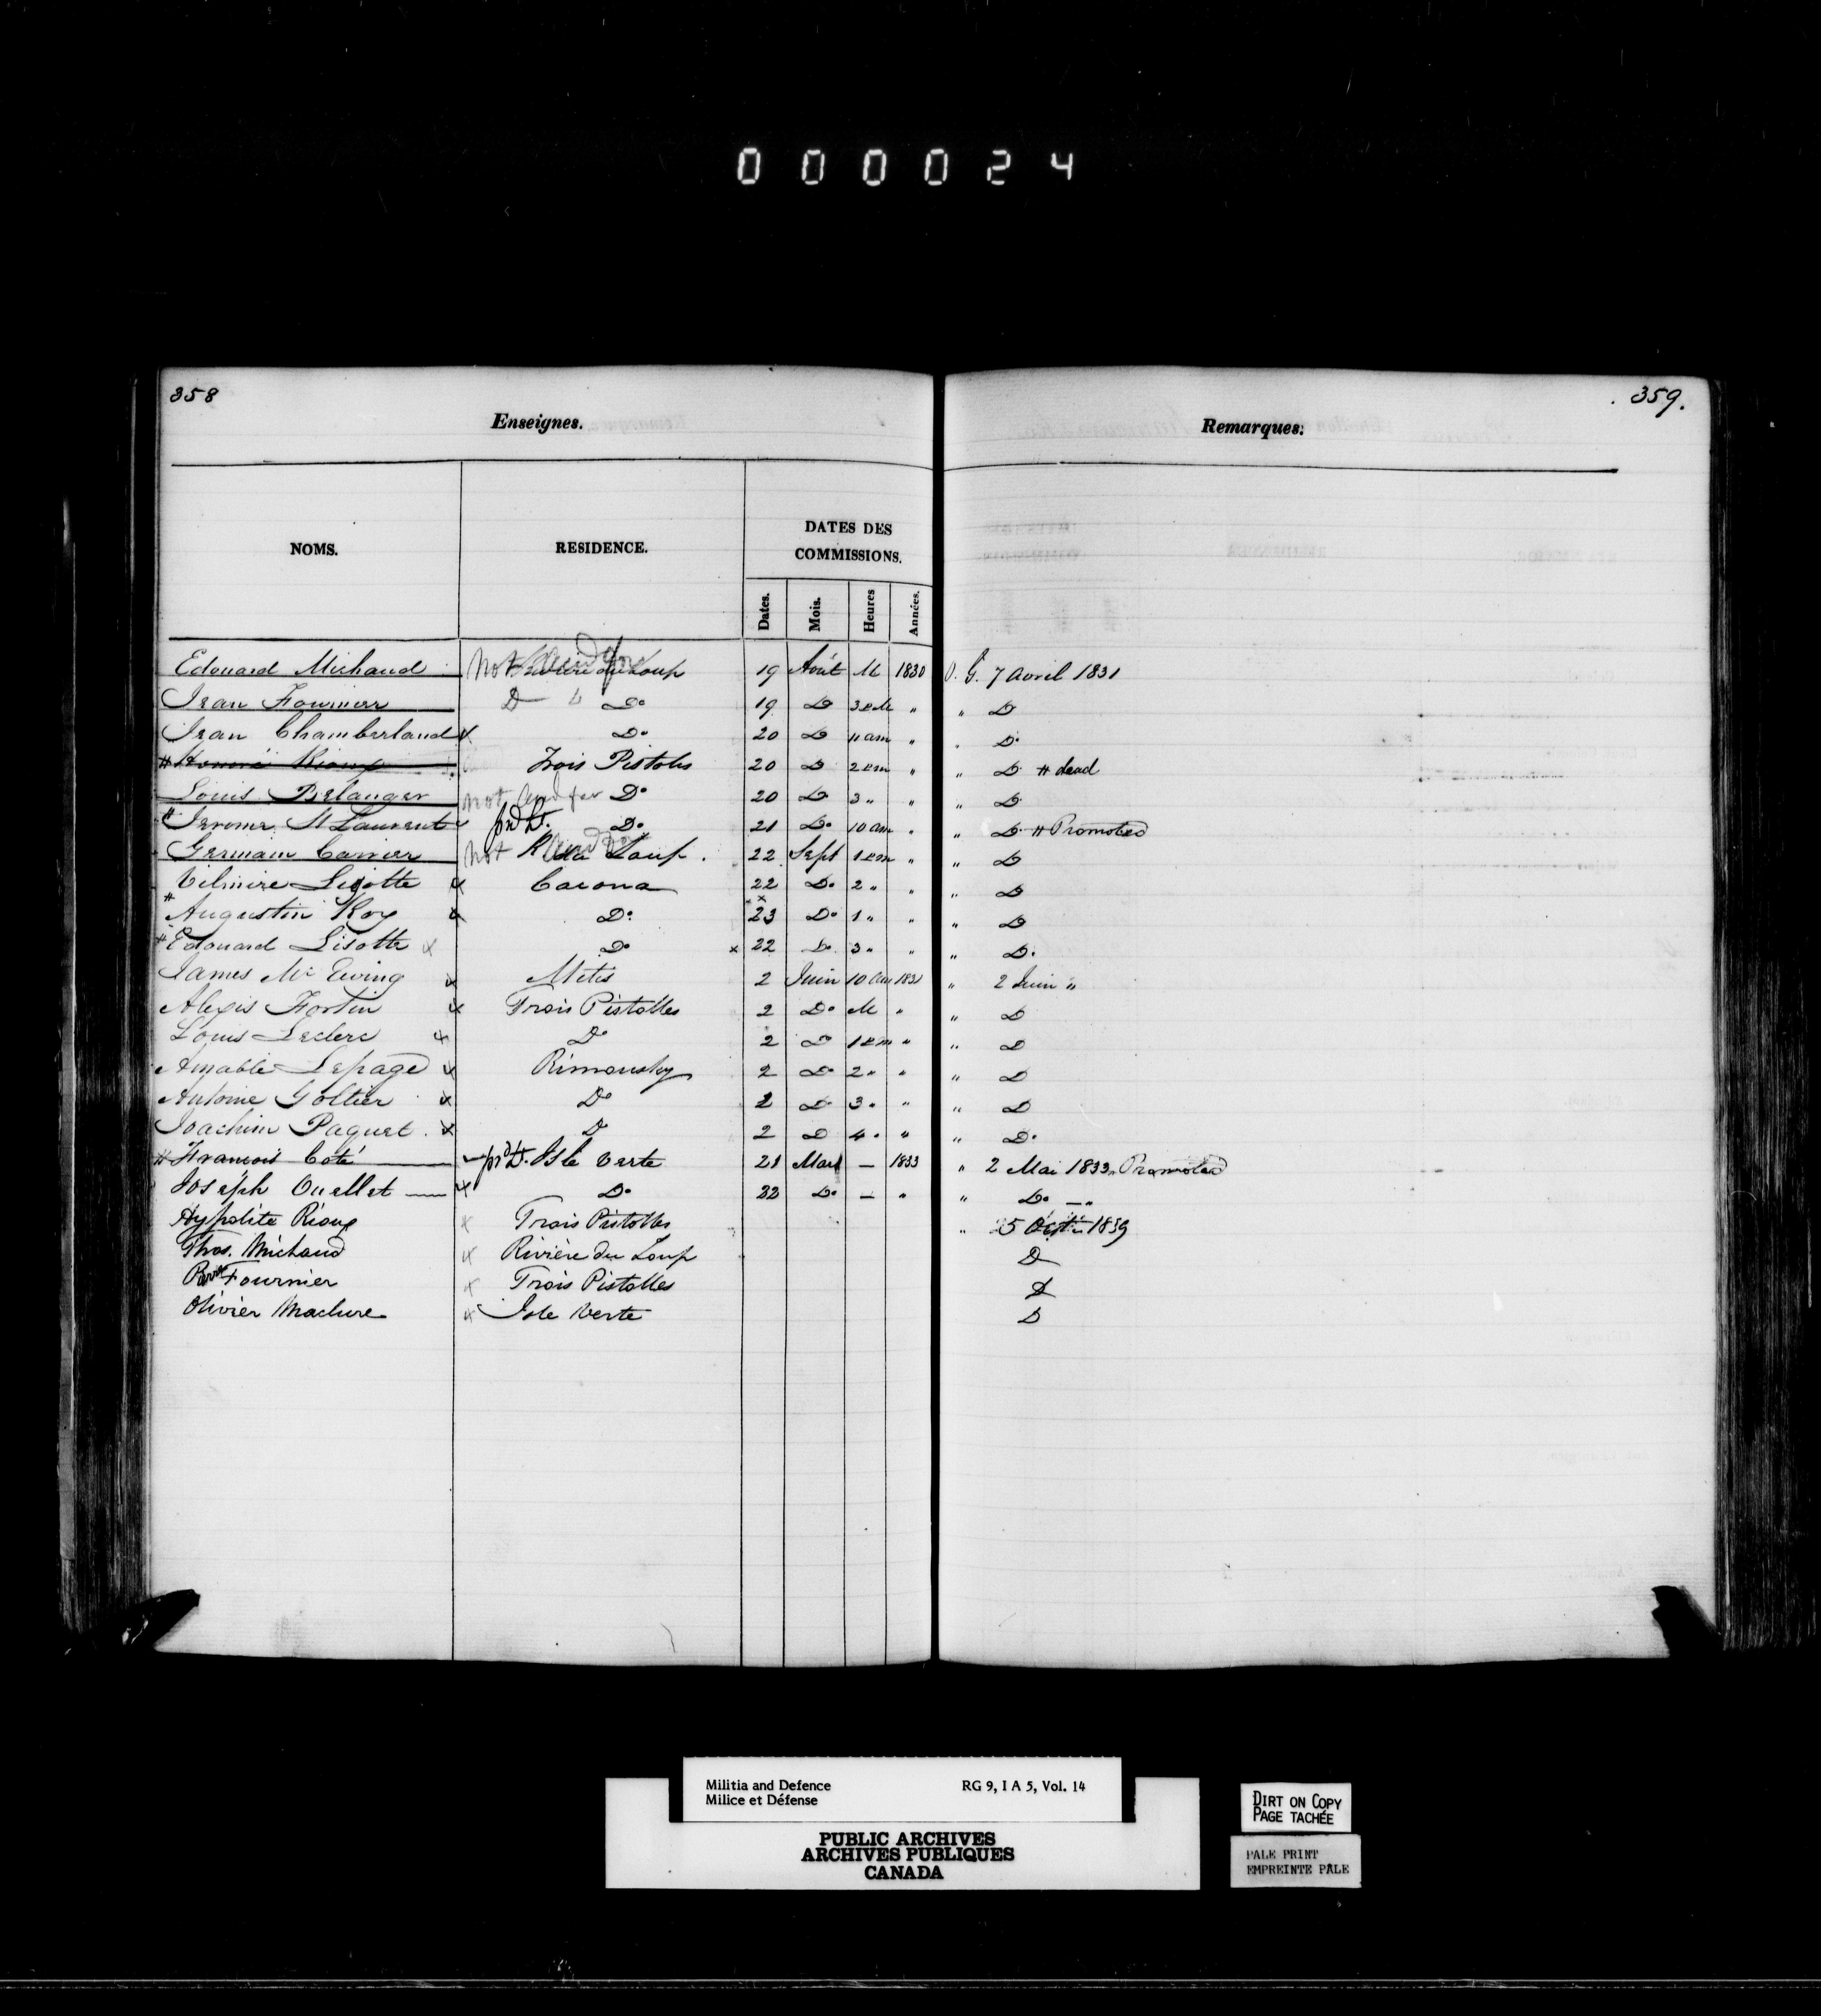 000024
358
359.
Enseignes.
Remarques.
NOMS. RESIDENCE. DATES DES COMMISSIONS.
Dates. Mois. Heures Années.
Edouard Michaud Not Rivière du Loup 19 Août M 1830 O. G. 7 Avril 1831
Jean Fournier D Do 19 Do 3 PM " " D
Jean Chamberland x Do 20 Do 11 am " " Do
# Honoré Rioux Trois Pistoles 20 Do 2 PM " " D # dead
Louis Belanger not Do 20 Do 3 " " " D
# Jerome St Laurent Do 21 Do 10 am " " D # Promoted
Germain Carrier Not R du Loup. 22 Sept 1 PM " " D
Vilmire Lizotte x Cacona 22 Do 2 " " " D
# Augustin Roy x Do 23 Do 1 " " " D
# Edouard Lisotte x Do x 22 Do 3 " " " D.
James Mc Ewing x Metis 2 Juin 10 am 1831 " 2 Juin "
Alexis Fortin x Trois Pistolles 2 Do M " " D
Louis Leclerc x Do 2 Do 1 PM " " D
Amable Lepage x Rimousky 2 Do 2 " " " D
Antoine Goltier x Do 2 Do 3 " " " D
Joachim Paquet x Do 2 D 4 " " " Do
# Francois Coté Isle Verte 21 Mars — 1833 " 2 Mai 1833 Promoted
Joseph Ouellet x Do 22 Do — " " Do — "
Hypolite Rioux x Trois Pistolles " 5 Oct. 1839
Thos. Michaud x Rivière du Loup D
Fournier x Trois Pistolles D
Olivier Maclure x Isle Verte D
Militia and Defence RG 9, I A 5, Vol. 14
Milice et Défense
PUBLIC ARCHIVES
ARCHIVES PUBLIQUES
CANADA
DIRT ON COPY
PAGE TACHÉE
PALE PRINT
EMPREINTE PÂLE